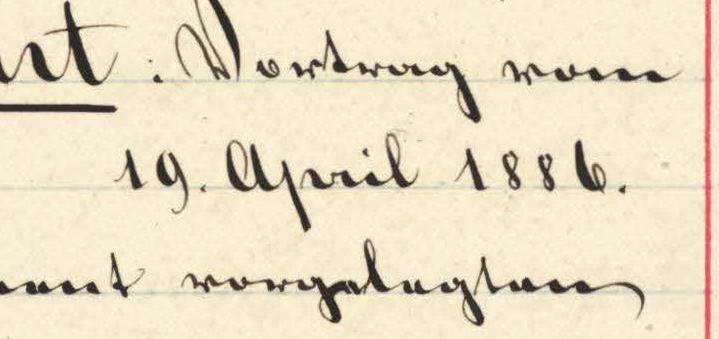 Vortrag vom
19. April 1886.
vorgelegten